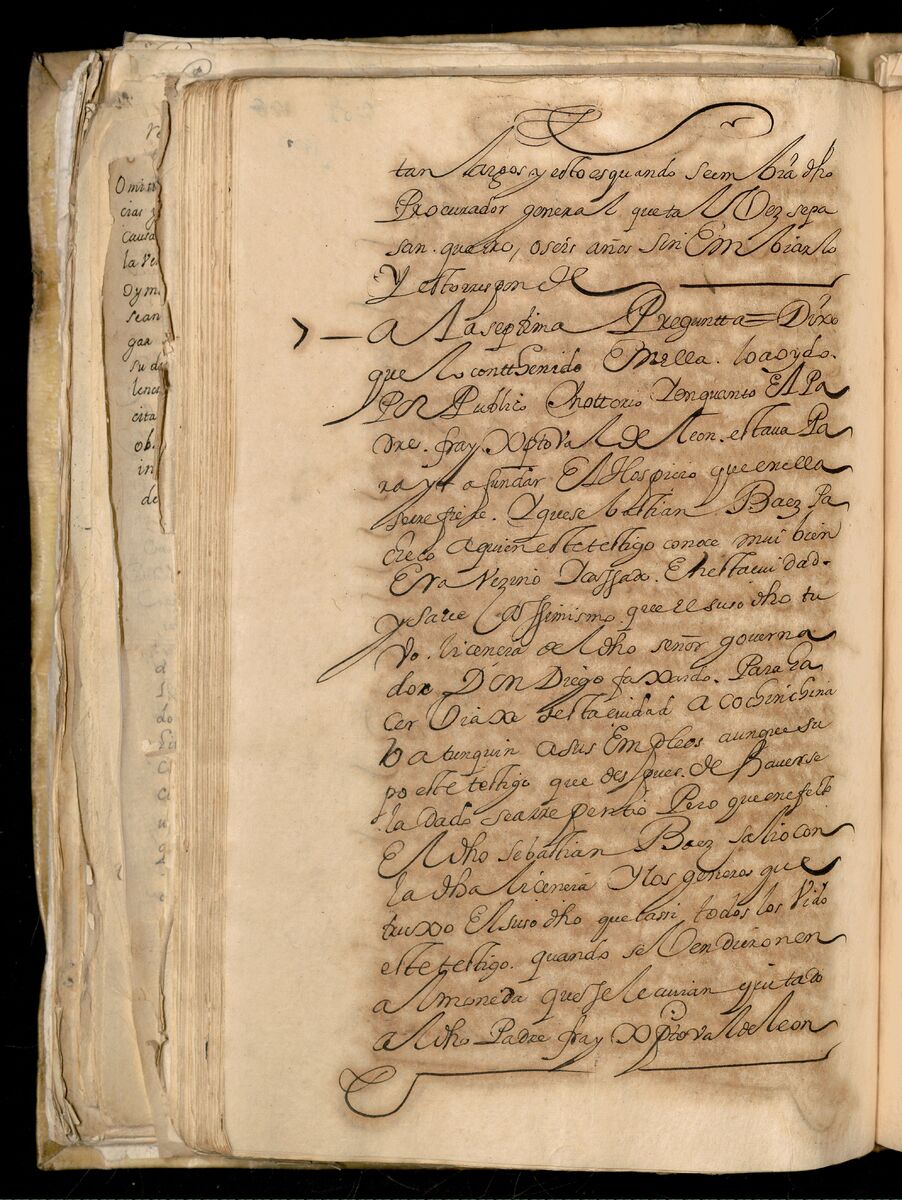 tan largos y esto es quando se embia dho
Procurador general que tal Vez se pa
san quatro, o seis años sin Embiarlo
Y esto responde
7 — A La septima Preguntta = Dixo
que lo contthenido En ella lo a oydo
Por Publico Y nottorio Y en quanto El Pa
dre fray Xptoval de Leon estaua Pa
ra yr a fundar El Hospicio que en ella
se refiere. Y que sebastian Baez Pa
checo a quien este testigo conoce mui bien
Era Vezino Y cassado En esta ciudad
y saue assimismo que el suso dho tu
vo licencia del dho señor governa
dor Don Diego faxardo Para ha
cer Viaxe desta ciudad a cochinchina
o a tunquin a sus Empleos aunque su
po este testigo que despues de hauerse
la dado se arrepentio Pero que en efeto
El dho sebastian Baez salio con
la dha licencia Y los generos que
truxo El suso dho que cassi todos los Vido
este testigo quando se Vendieron en
almoneda que se le auian quitado
al dho Padre fray Xptoval de Leon
Omiti
cias
causa
la Ve
Dym
sean
gar
su de
lenci
cita
ob.
in
de